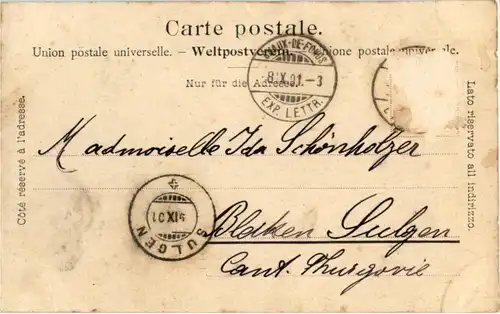 Carte postale.
Union postale universelle. – Weltpostverein. – Unione postale universale.
CHAUX-DE-FONDS
8.X.01.–3
EXP. LETTR.
Nur für die Adresse.
Côté réservé à l'adresse.
Lato riservato all indirizzo.
Madmoiselle Ida Schönholzer
SULGEN
9.IX.01
Sulgen
Cant. Thurgovie